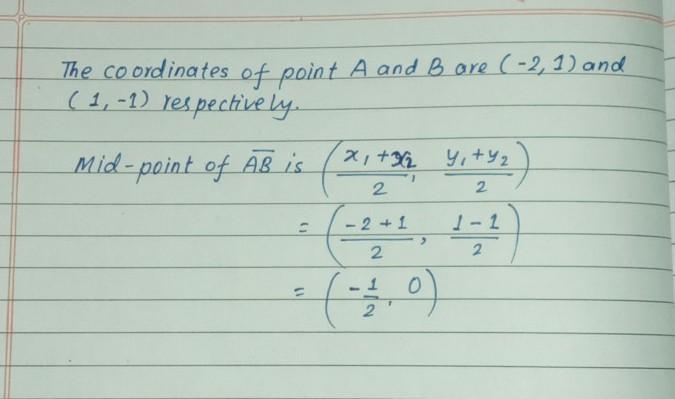 The coordinates of point A and B are (-2, 1) and
(1, -1) respectively.
Mid-point of \overline{AB} is \left(\frac{x_1+x_2}{2}, \frac{y_1+y_2}{2}\right)
= \left(\frac{-2+1}{2}, \frac{1-1}{2}\right)
= \left(-\frac{1}{2}, 0\right)